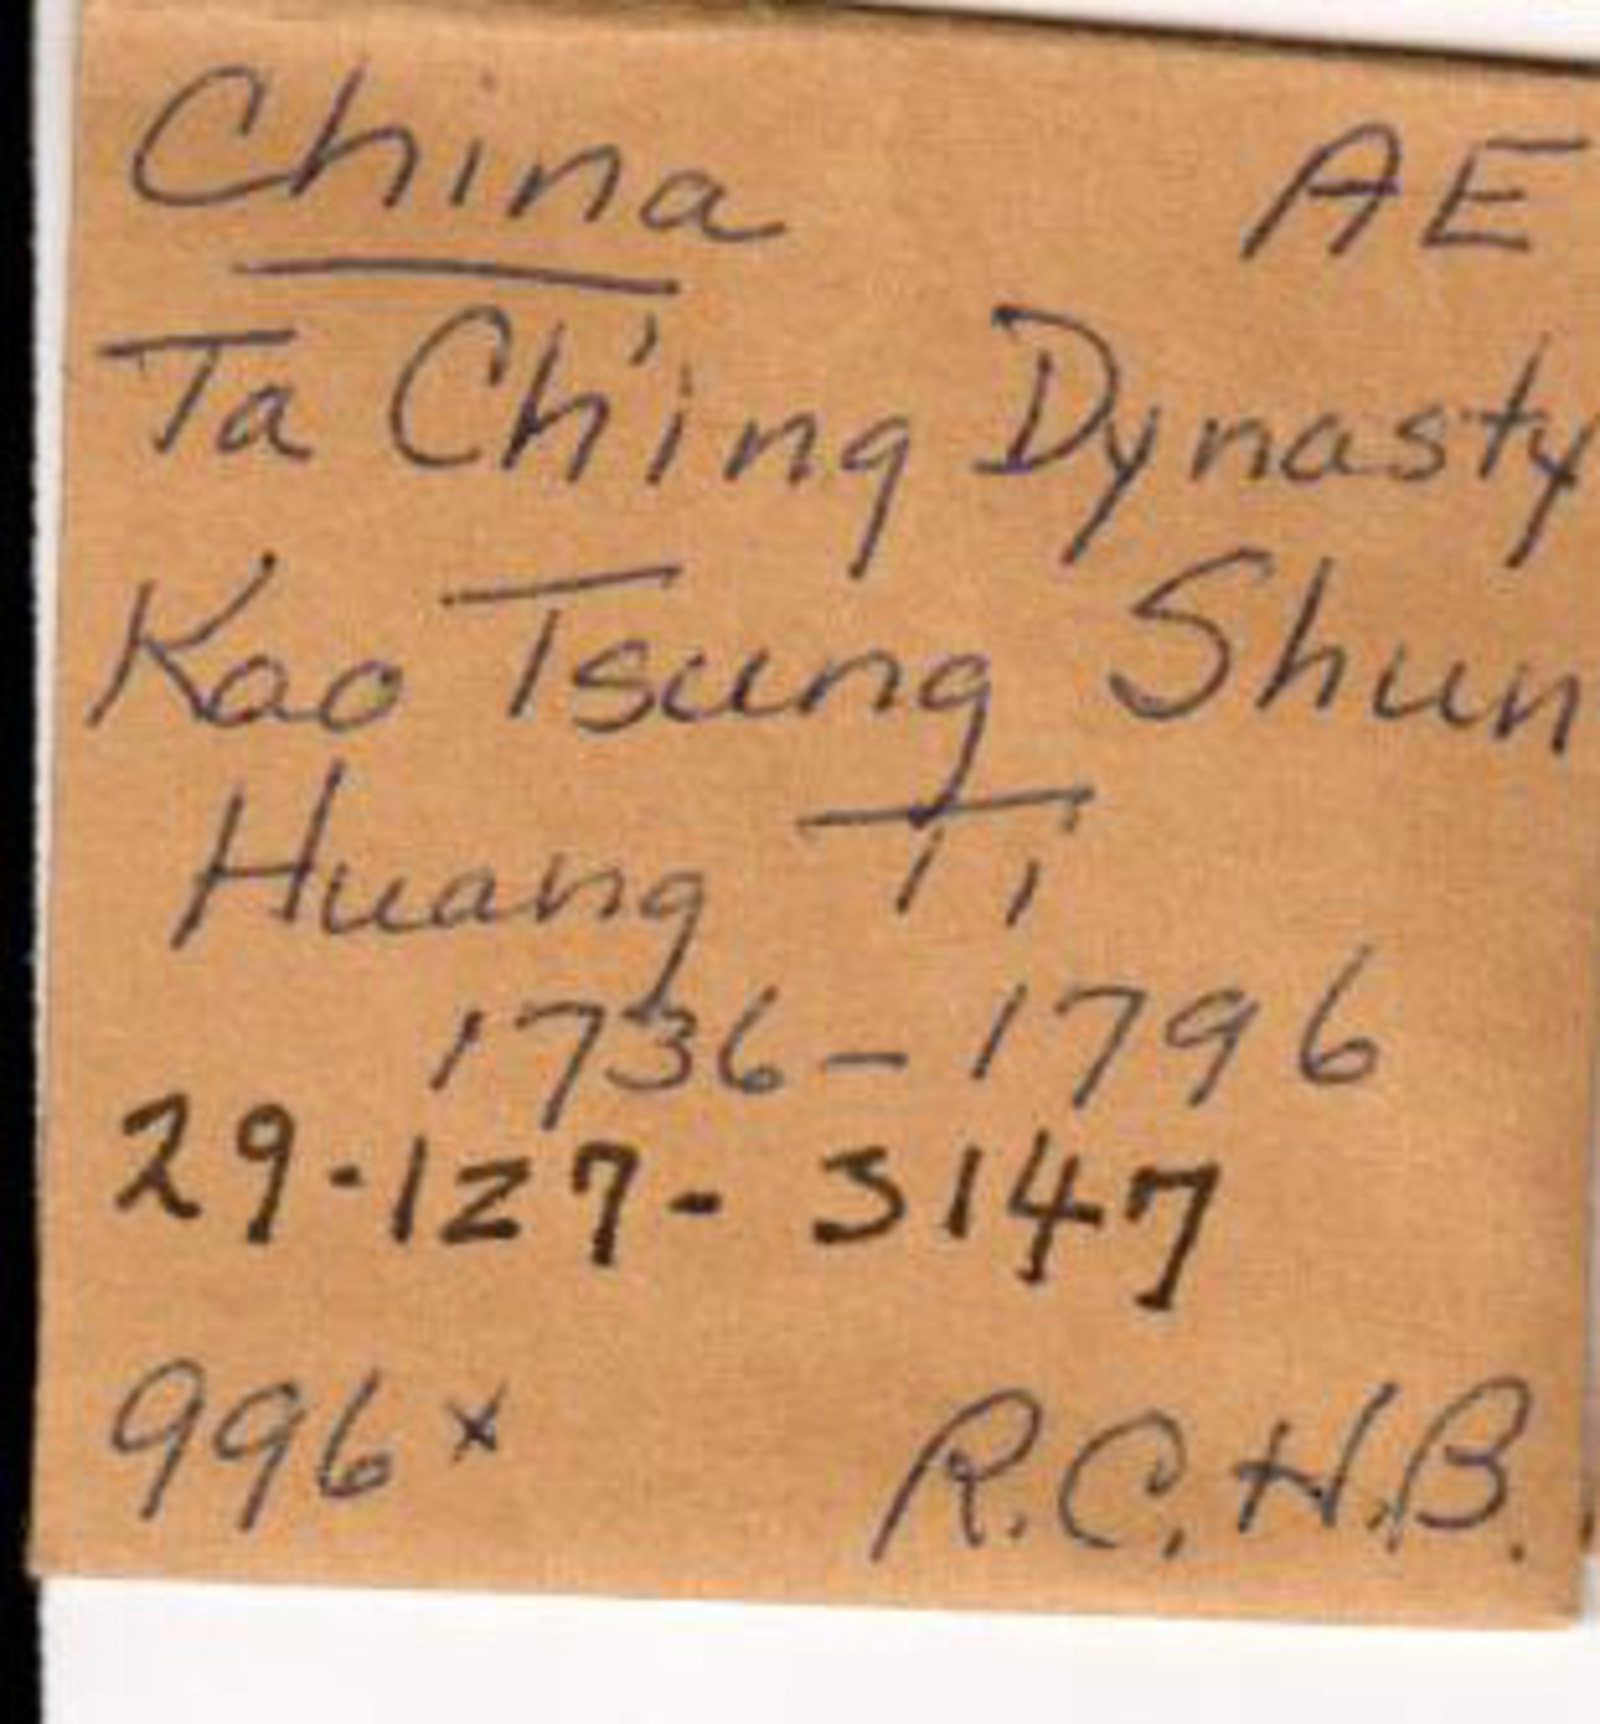 China AE
Ta Ch'ing Dynasty
Kao Tsung Shun
Huang Ti
1736-1796
29-127-3147
996x R.C.H.B.